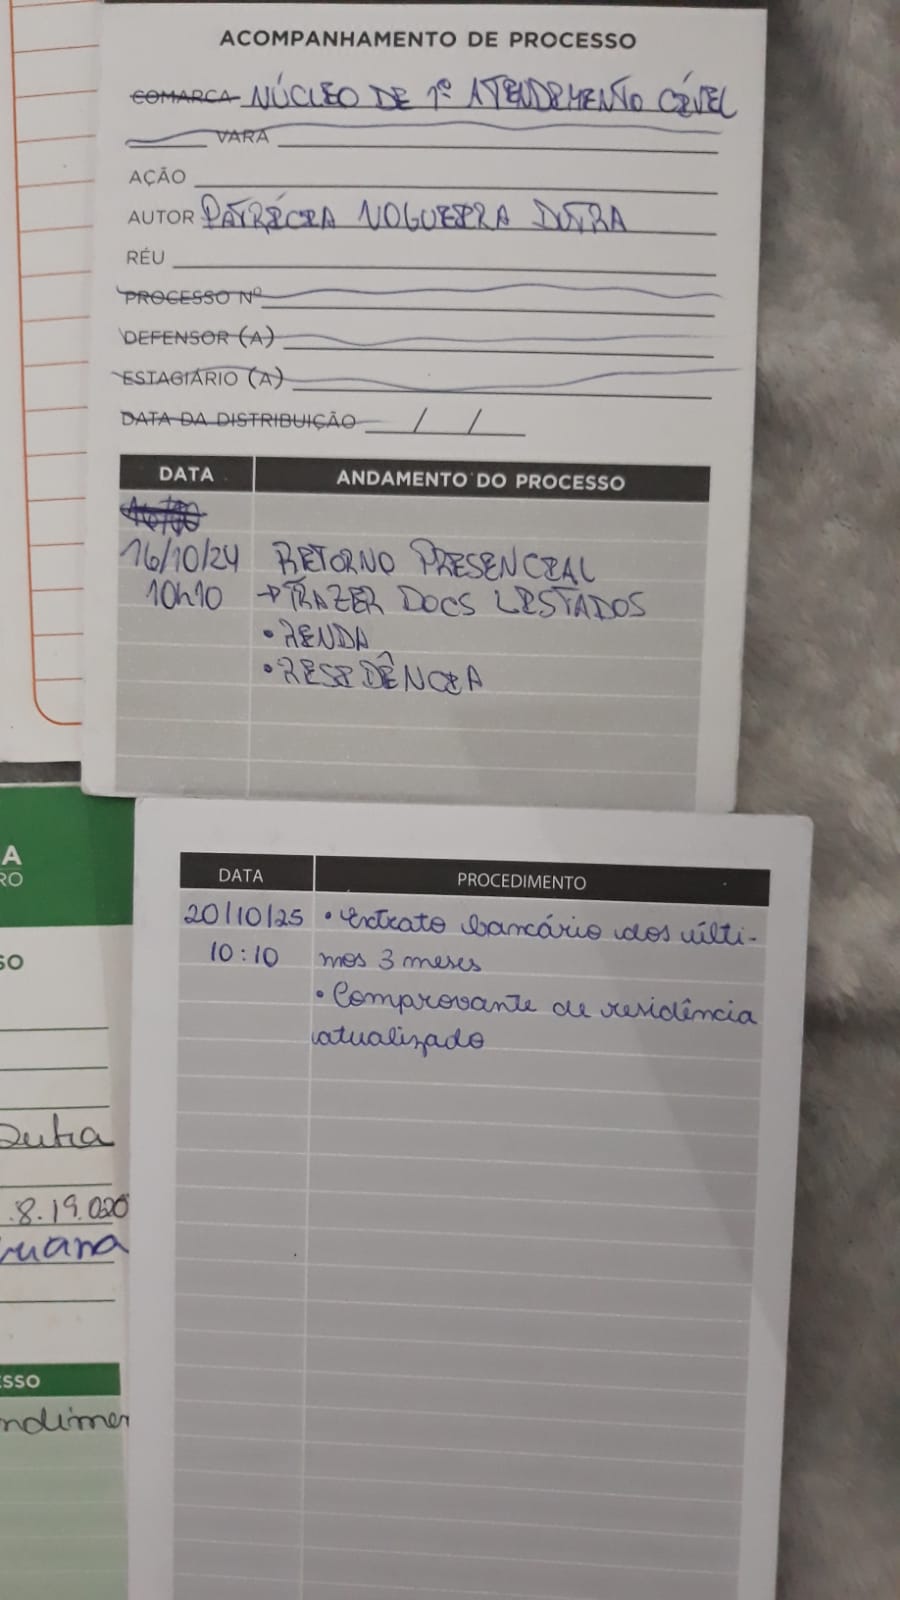 ACOMPANHAMENTO DE PROCESSO
COMARCA NÚCLEO DE 1º ATENDIMENTO CÍVEL
VARA
AÇÃO
AUTOR PATRÍCIA NOGUEIRA DUTRA
RÉU
PROCESSO Nº
DEFENSOR (A)
ESTAGIÁRIO (A)
DATA DA DISTRIBUIÇÃO / /
DATA ANDAMENTO DO PROCESSO
16/10/24 RETORNO PRESENCIAL
10h10 → TRAZER DOCS LISTADOS
• RENDA
• RESIDÊNCIA
A
RO
SO
Dutra
.8.19.020
uana
ESSO
ndimen
DATA PROCEDIMENTO
20/10/25 • Extrato bancário dos últi-
10:10 mos 3 meses
• Comprovante de residência
atualizado